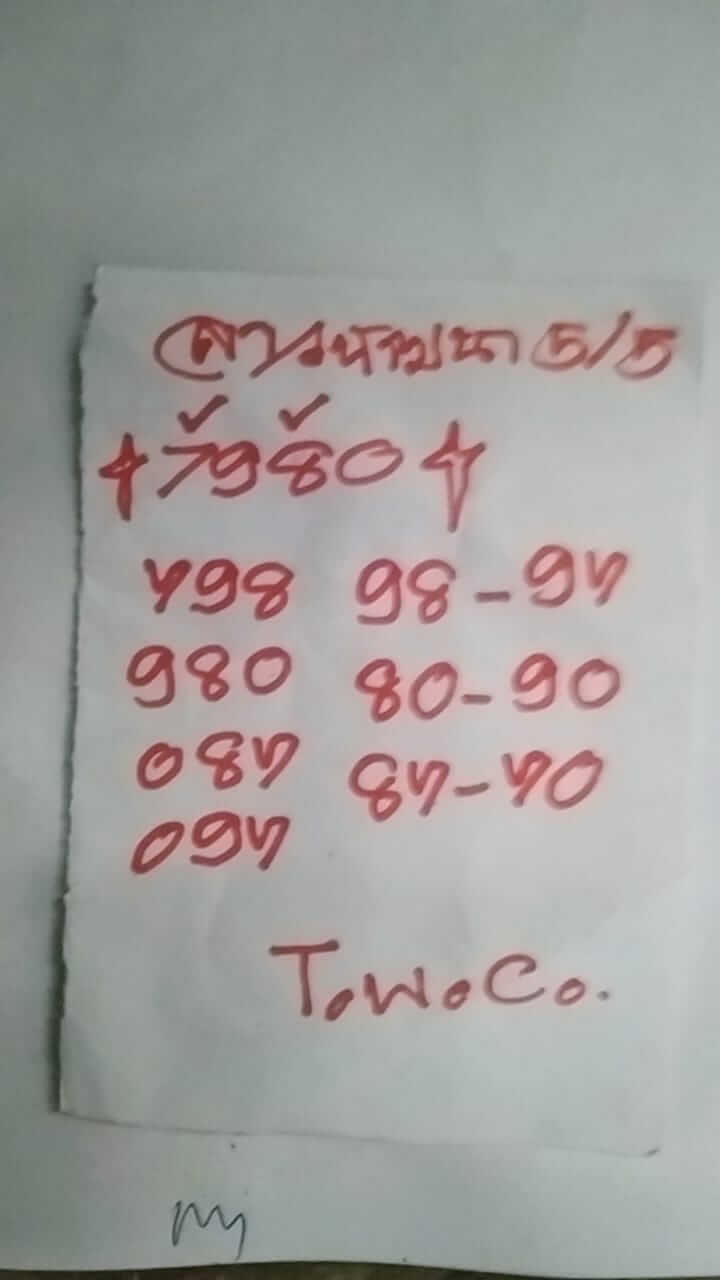 ลาวพัฒนา 5/5
7980
798 98-97
980 80-90
087 87-70
097
T.W.Co.